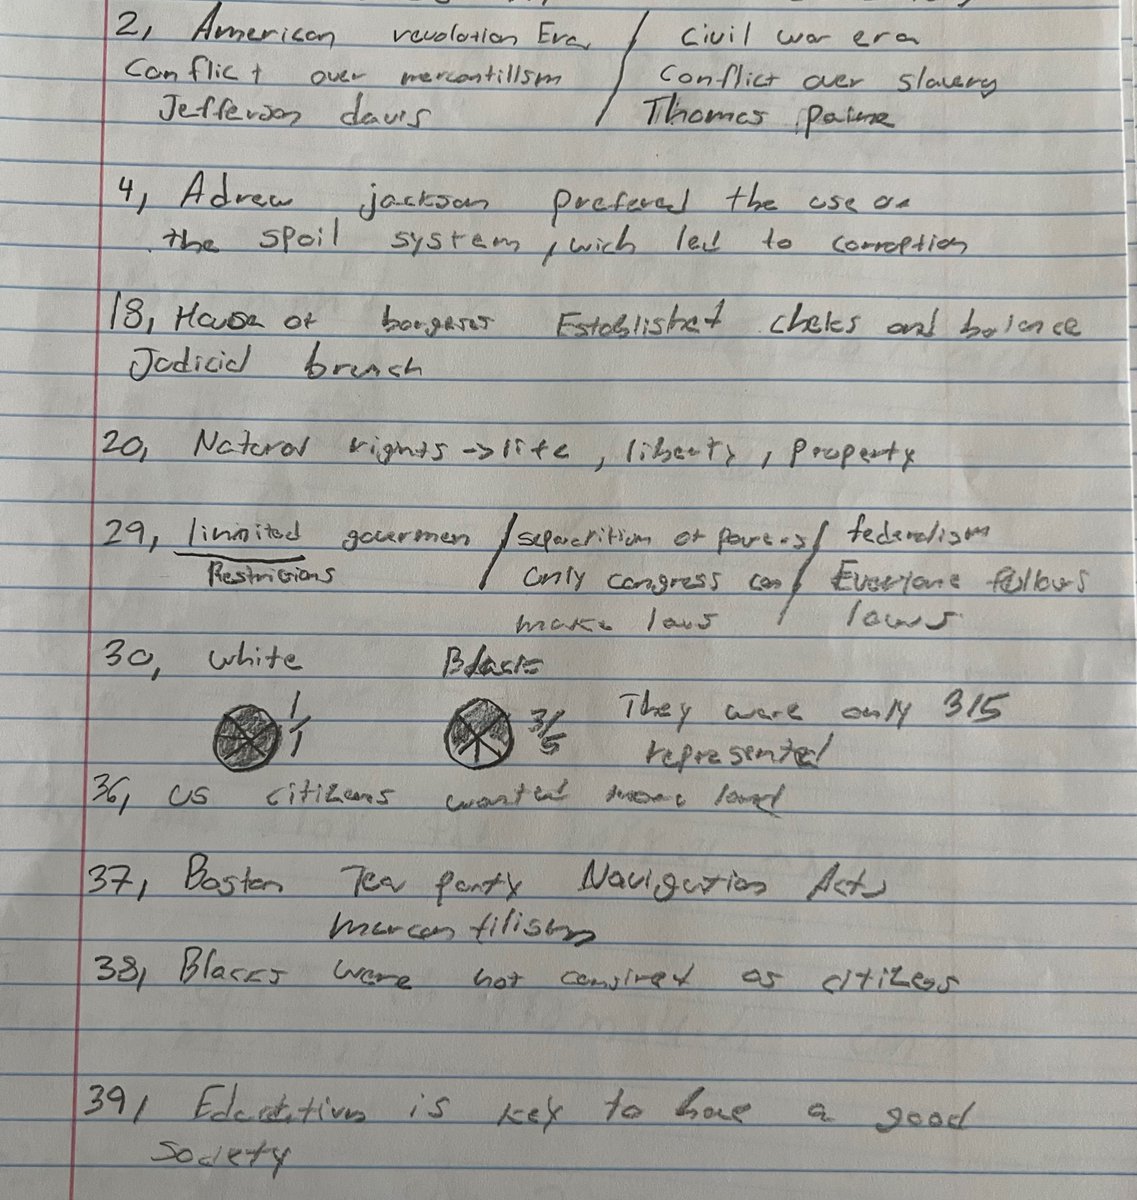 2, American revolotion Era / Civil war era
Conflict over mercantillsm / Conflict over slavery
Jefferson davis / Thomas paine
4, Adrew jackson prefered the use on
the spoil system, wich led to corroption
18, House of borgeses Established cheks and balance
Jodicial branch
20, Natoral rights -> life, liberty, property
29, limnited goverment / separition of powers / federalism
Restritions / only congress can / Everione follows
make laws / laws
30, White Black
1/1 3/5 They were only 3/5
represented
36, US citizens wanted more land
37, Boston Tea party Navigation Acts
mercantilism
38, Blacks were not consired as citizens
39, Edcation is key to have a good
society